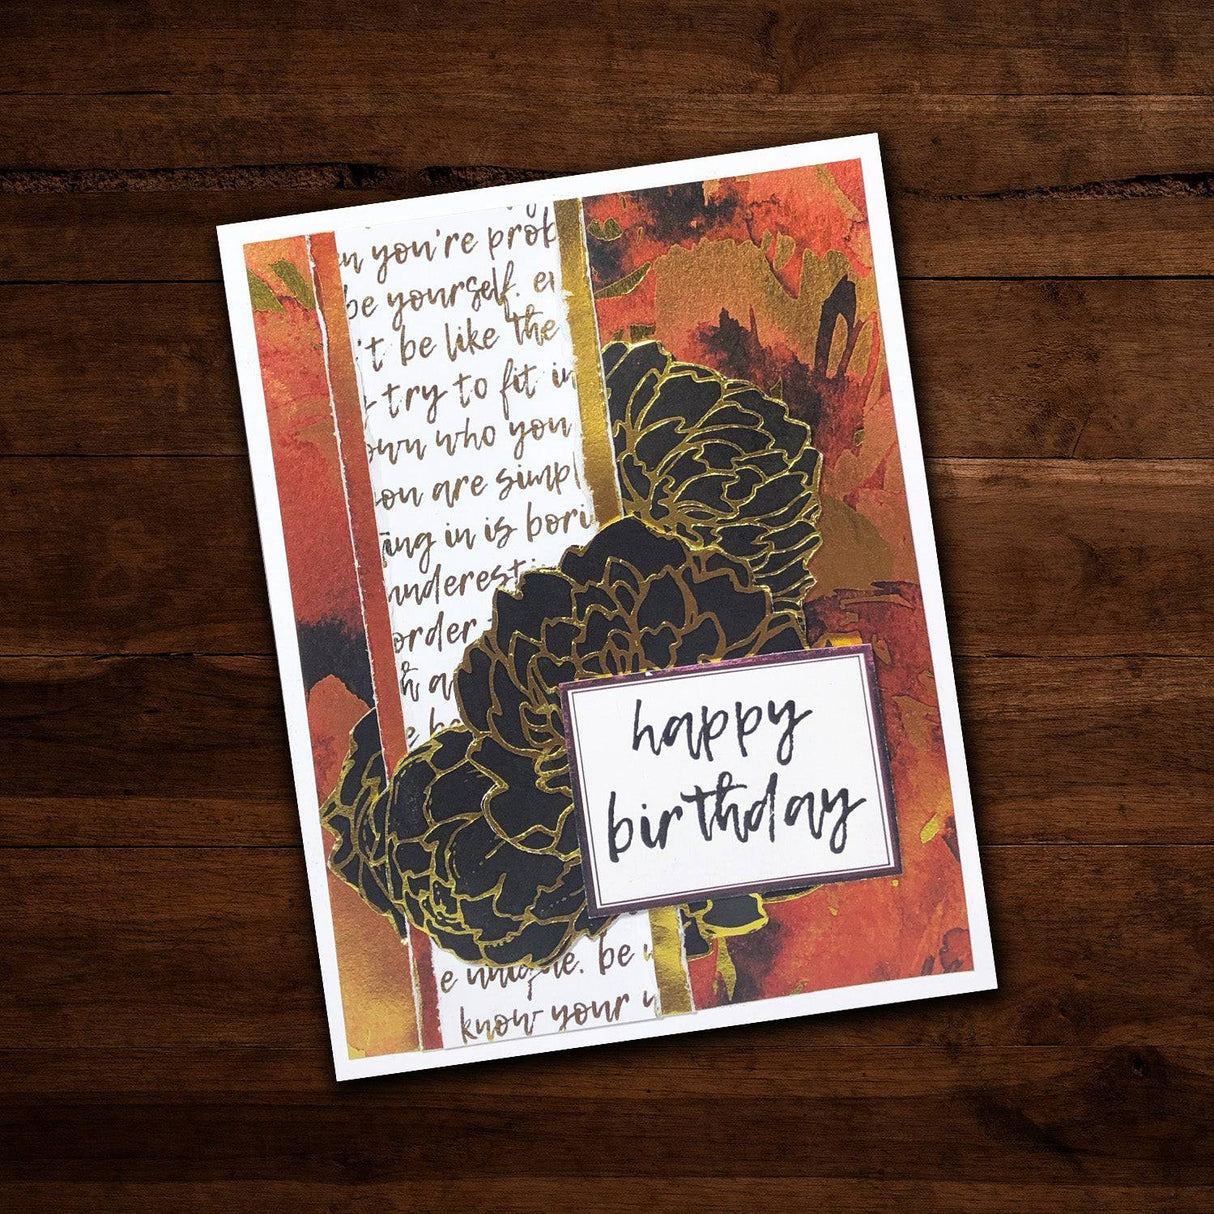 you're prob
be yourself. e
't be like the
try to fit in
own who you
you are simpl
ting in is bori
underesti
order
h a
e b
happy
birthday
e unique. be
know your